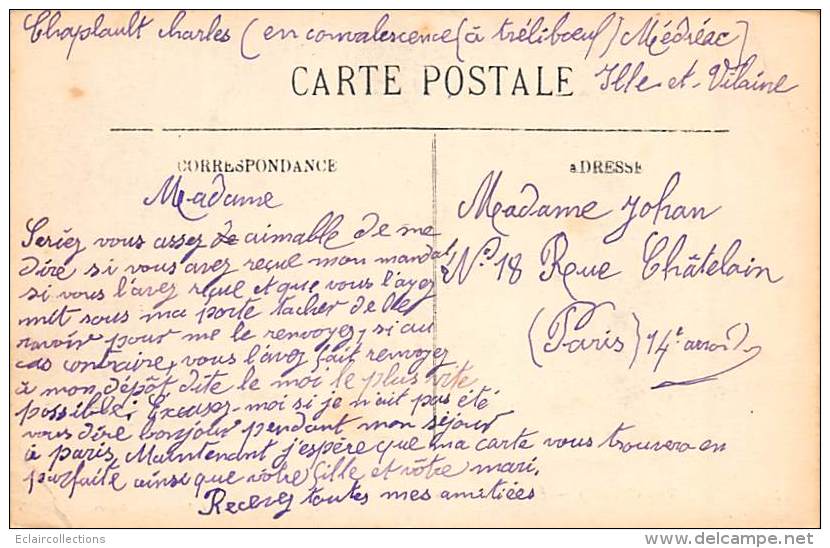 Chaplault Charles (en convalescence (à tréliboeuf) Médréac)
Ille et-Vilaine
CARTE POSTALE
CORRESPONDANCE
ADRESSE
Madame
Seriez vous assez de aimable de me
dire si vous avez reçue mon mandat
si vous l'avez reçue et que vous l'ayez
mit sous ma porte tacher de le
ravoir pour me le renvoyez, si au
cas contraire, vous l'avez fait renvoyez
à mon dépôt dite le moi le plus vite
possible. Excusez-moi si je n'ait pas été
vous dire bonjour pendant mon séjour
à paris. Maintenant j'espère que ma carte vous trouvera en
parfaite ainsi que vôtre fille et vôtre mari.
Recevez toutes mes amitiées
Madame Johan
N° 18 Rue Châtelain
(Paris) 14e arrond
Eclaircollections
delcampe.net